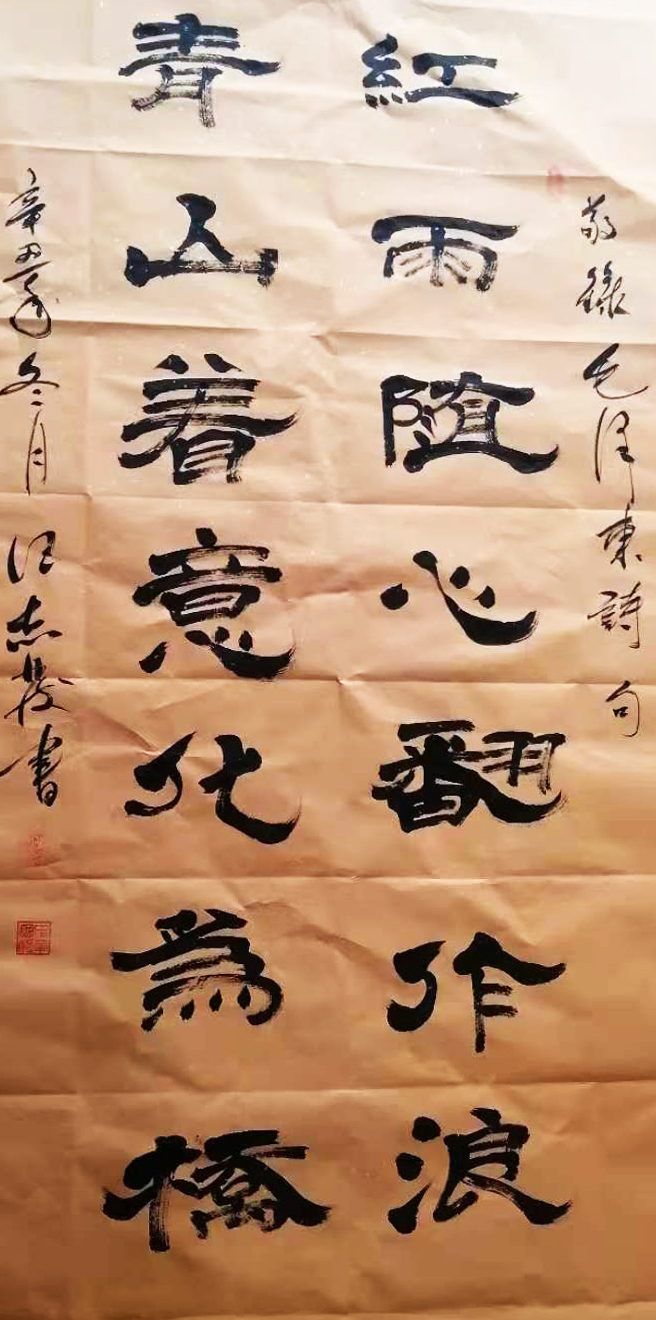 敬錄毛泽東詩句
紅雨随心翻作浪
青山着意化為橋
辛丑年冬月 汪志发書